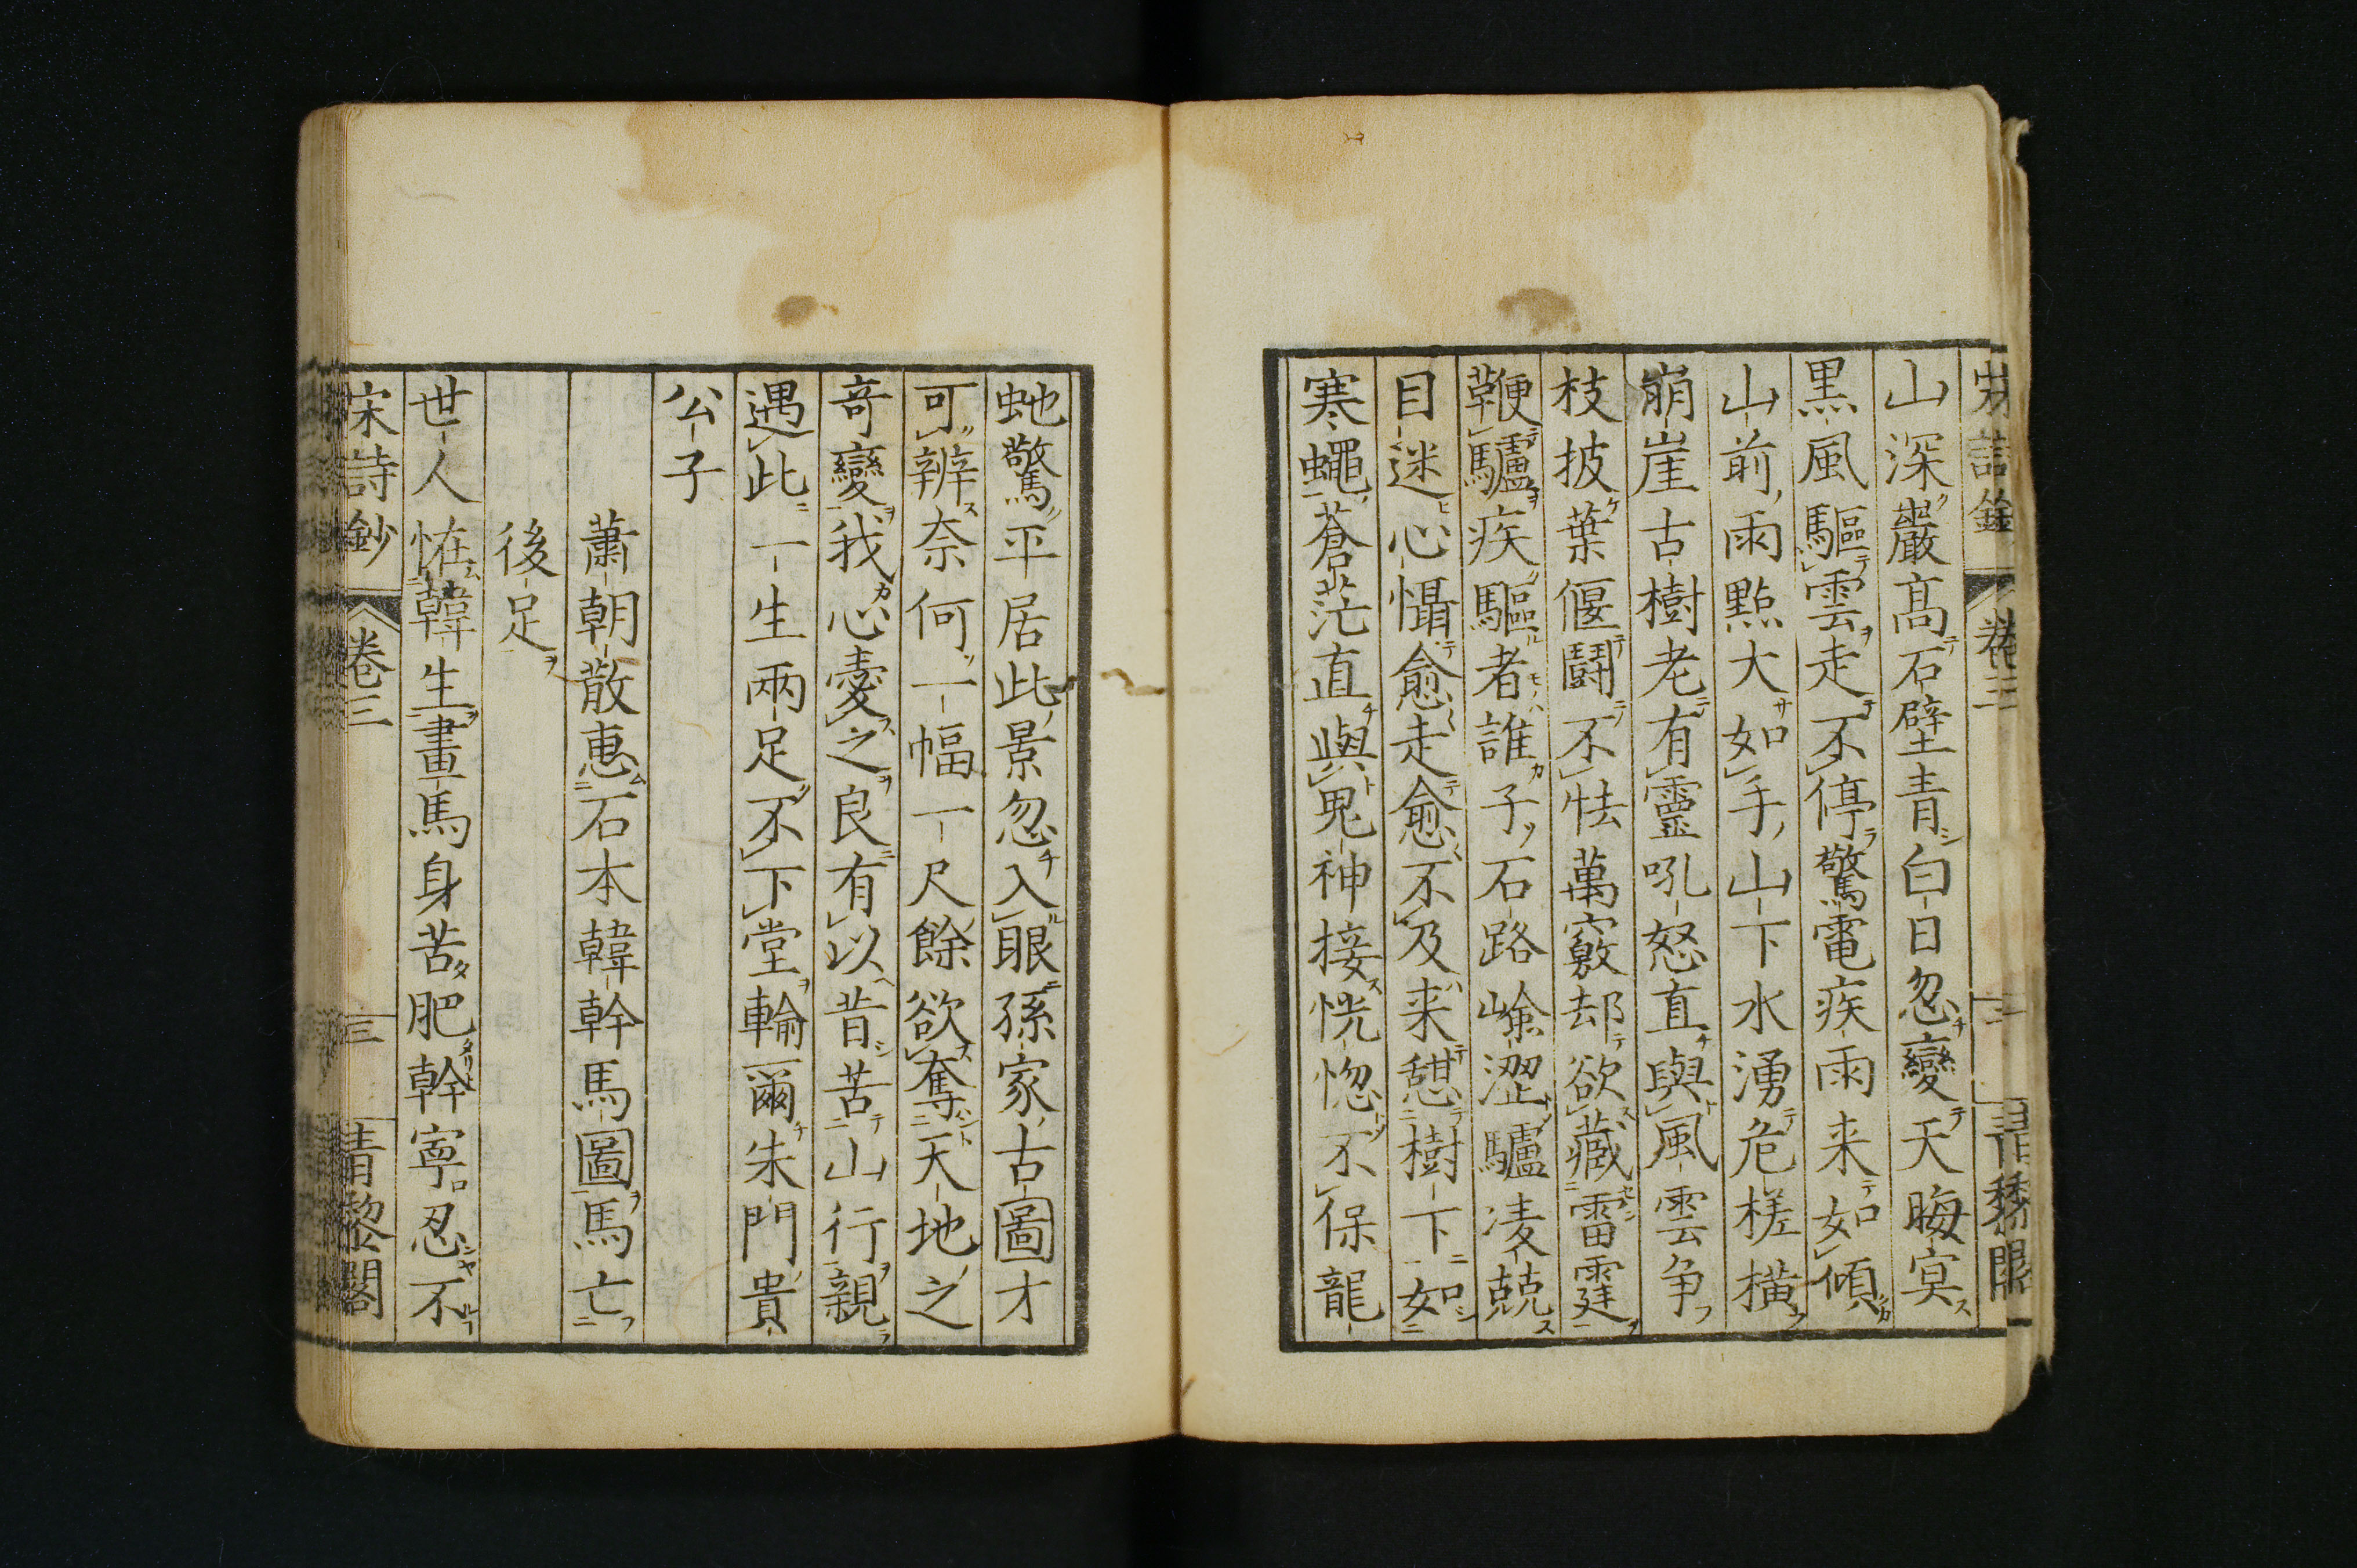 山深巖高石壁青白日忽變天晦㝠
黒風驅雲走不停驚電疾雨来如傾
山前雨點大如手山下水湧危槎橫
崩崖古樹老有靈吼怒直與風雲争
枝披葉偃鬭不怯萬竅却欲藏雷霆
鞭驢疾驅者誰子石路嶮澀驢凌兢
目迷心懾愈走愈不及来憩樹下如
寒蠅蒼茫直與鬼神接恍惚不保龍
虵驚平居此景忽入眼孫家古圖才
可辨奈何一幅一尺餘欲奪天地之
竒變我心憂之良有以昔苦山行親
遇此一生兩足不下堂輸爾朱門貴
公子
蕭朝散惠石本韓幹馬圖馬亡
後足
世人恠韓生畫馬身苦肥幹寧忍不
宋詩鈔 卷三 三 青黎閣